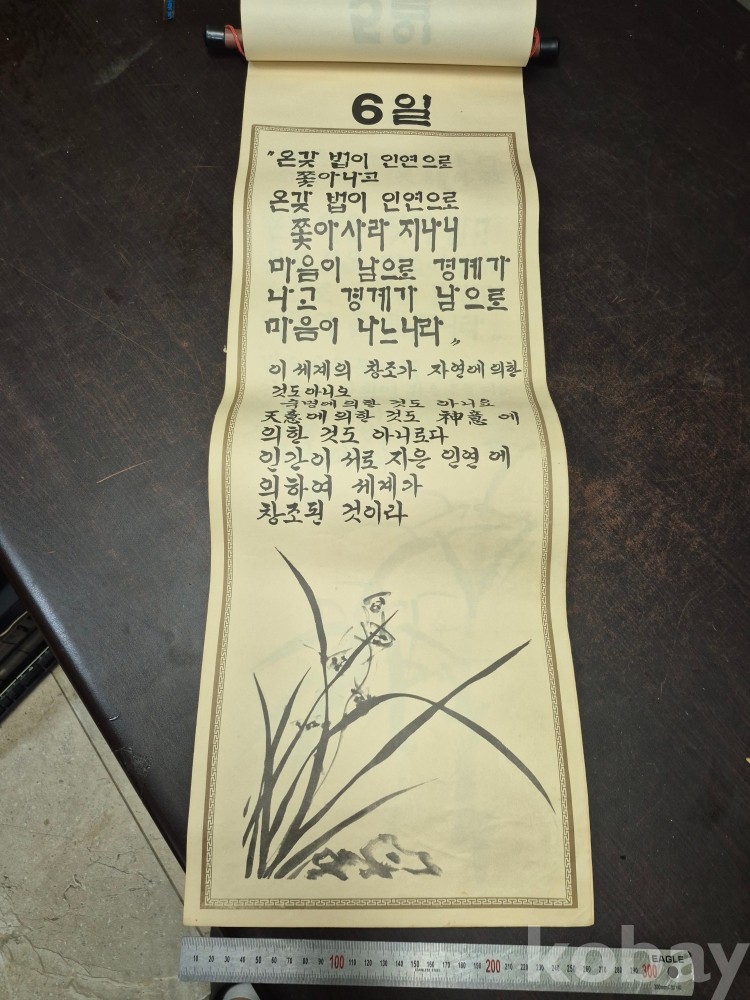 6일
"온갖 법이 인연으로
쫓아나고
온갖 법이 인연으로
쫓아사라 지나니
마음이 남으로 경계가
나고 경계가 남으로
마음이 나느니라"
이 세계의 창조가 자연에 의한
것도 아니오
숙명에 의한 것도 아니요
天意에 의한 것도 神意에
의한 것도 아니로다
인간이 서로 지은 인연에
의하여 세계가
창조된 것이라
kobay
EAGLE
10 20 30 40 50 60 70 80 90 100 110 120 130 140 150 160 170 180 190 200 210 220 230 240 250 260 270 280 290 300